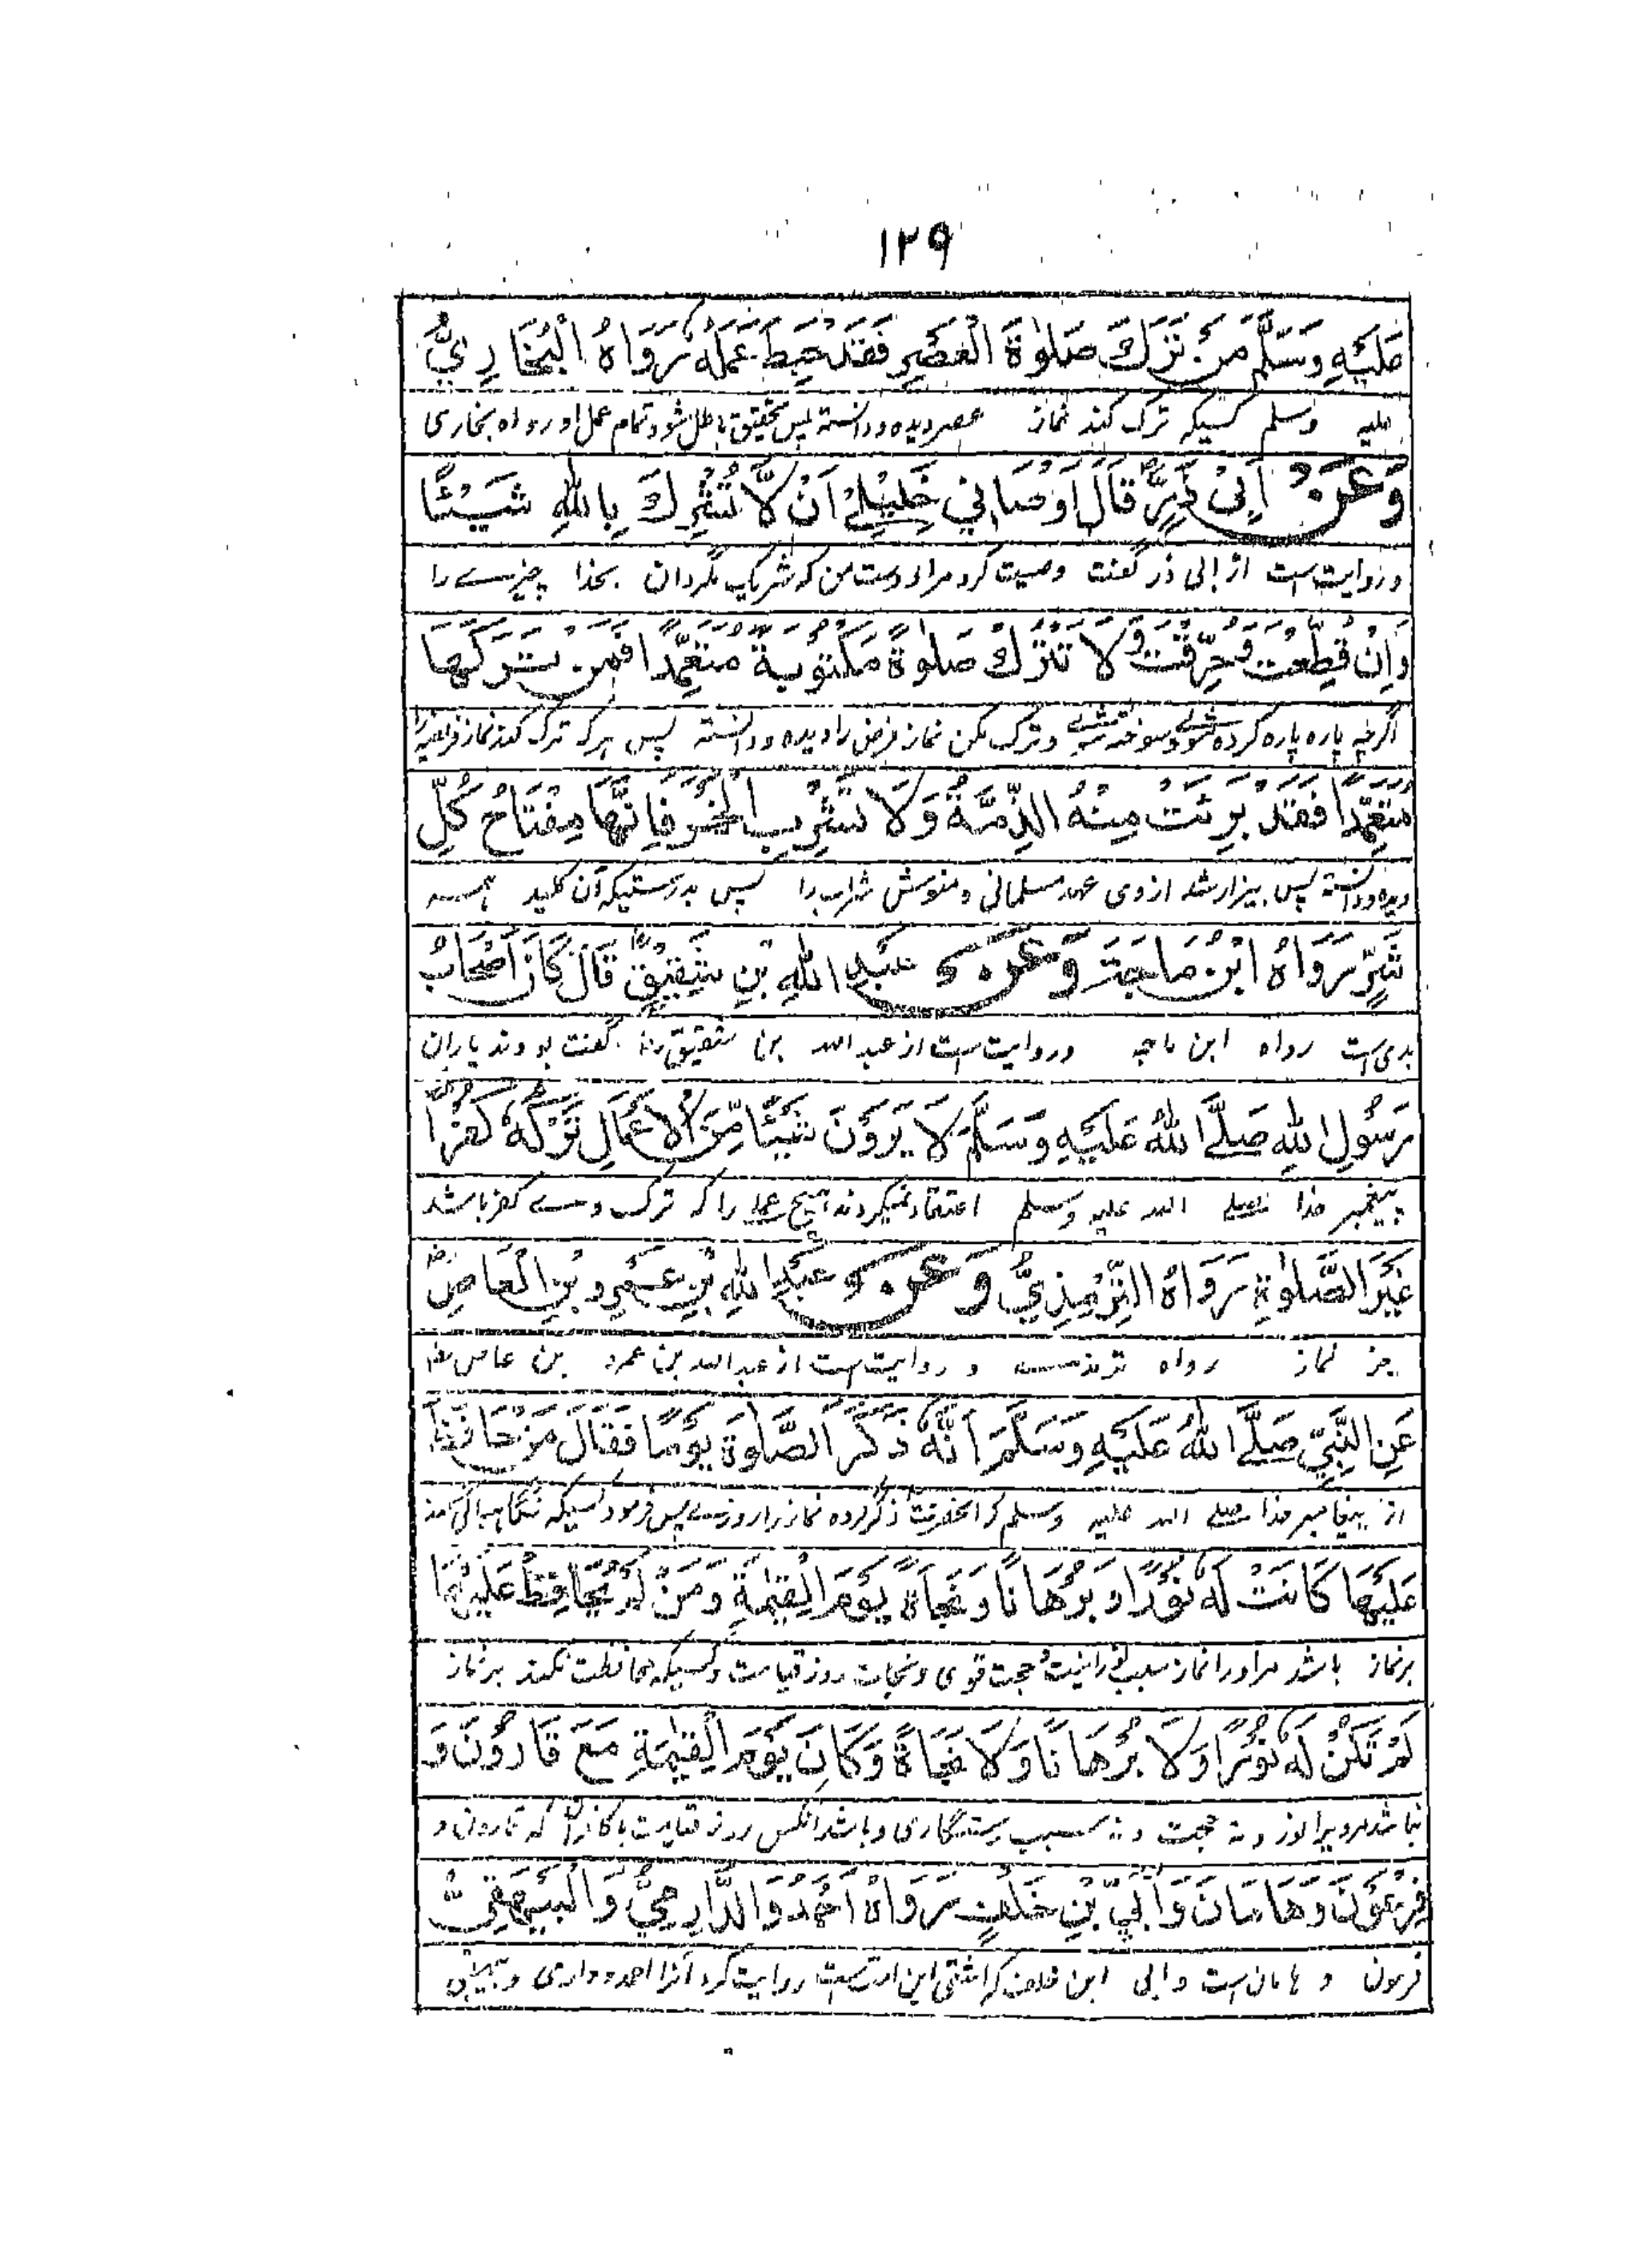 ١٢٩
عَلَيْهِ وَسَلَّمَ مَنْ تَرَكَ صَلٰوةَ الْعَصْرِ فَقَدْ حَبِطَ عَمَلُهُ رَوَاهُ الْبُخَارِيُّ
علیه وسلم کسیکه ترک کند نماز عصر دیده و دانسته پس تحقیق باطل شود تمام عمل او رواه بخاری
وَعَنْ اَبِیْ ذَرٍّ قَالَ اَوْصَانِي خَلِيْلِیْ اَنْ لَّا تُشْرِكَ بِاللهِ شَيْئًا
و روایت ست از ابی ذر گفت وصیت کرد مرا دوست من که شریک مگردان بخدا چیزے را
وَاِنْ قُطِّعْتَ وَحُرِّقْتَ وَلَا تَتْرُكْ صَلٰوةً مَكْتُوْبَةً مُتَعَمِّدًا فَمَنْ تَرَكَهَا
اگرچه پاره پاره کرده شوی و سوخته شوی و ترک مکن نماز فرض را دیده و دانسته پس هرکه ترک کند نماز فریضه را
مُتَعَمِّدًا فَقَدْ بَرِئَتْ مِنْهُ الذِّمَّةُ وَلَا تَشْرِبِ الْخَمْرَ فَاِنَّهَا مِفْتَاحُ كُلِّ
دیده و دانسته پس بیزار شد از وی عهد مسلمانی و منوش شراب را پس بدرستیکه آن کلید همه
شَرٍّ رَوَاهُ ابْنُ مَاجَةَ وَعَنْ عَبْدِ اللهِ بْنِ شَقِيْقٍ قَالَ كَانَ اَصْحَابُ
بدی ست رواه ابن ماجه و روایت ست از عبد الله بن شقیق رض گفت بودند یاران
رَسُوْلِ اللهِ صَلَّى اللهُ عَلَيْهِ وَسَلَّمَ لَا يَرَوْنَ شَيْئًا مِّنَ الْاَعْمَالِ تَرْكُهُ كُفْرًا
پیغمبر خدا صلے الله علیه وسلم اعتقاد نمیکردند هیچ عمل را که ترک وے کفر باشد
غَيْرَ الصَّلٰوةِ رَوَاهُ التِّرْمِذِيُّ وَعَنْ عَبْدِ اللهِ بْنِ عَمْرِو بْنِ الْعَاصِ رض
جز نماز رواه ترمذے و روایت ست از عبد الله بن عمرو بن عاص رض
عَنِ النَّبِيِّ صَلَّى اللهُ عَلَيْهِ وَسَلَّمَ اَنَّهُ ذَكَرَ الصَّلٰوةَ يَوْمًا فَقَالَ مَنْ حَافَظَ
از پیغامبر خدا صلے الله علیه وسلم که آنحضرت ذکر کرده نماز را روزے پس فرمود کسیکه نگاهبانی کند
عَلَيْهَا كَانَتْ لَهُ نُوْرًا وَبُرْهَانًا وَنَجَاةً يَوْمَ الْقِيٰمَةِ وَمَنْ لَمْ يُحَافِظْ عَلَيْهَا
بر نماز باشد مر او را نماز سبب نورانیت و حجت قوی و نجات روز قیامت و کسیکه محافظت نکند بر نماز
لَمْ تَكُنْ لَهُ نُوْرًا وَلَا بُرْهَانًا وَلَا نَجَاةً وَكَانَ يَوْمَ الْقِيٰمَةِ مَعَ قَارُوْنَ وَ
نباشد مر ویرا نور و نه حجت و نه سبب رستگاری و باشد آنکس روز قیامت با کافران که قارون و
فِرْعَوْنَ وَهَامَانَ وَاُبَيِّ بْنِ خَلَفٍ رَوَاهُ اَحْمَدُ وَالدَّارِمِيُّ وَالْبَيْهَقِيُّ
فرعون و هامان ست و ابی ابن خلف که اشقی این امت ست روایت کرد آنرا احمد و دارمی و بیهقی